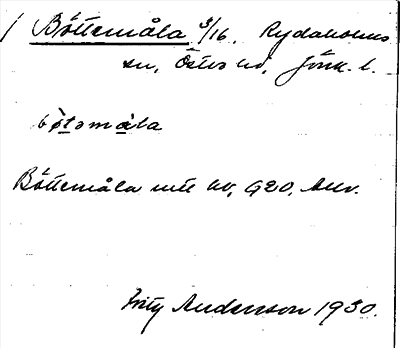 Böttemåla 3/16. Rydaholms
sn, Östbo hd, Jönk. l.
bötəmåla
Böttemåla utt hd, G20, Anv.
Fritz Anderson 1930.